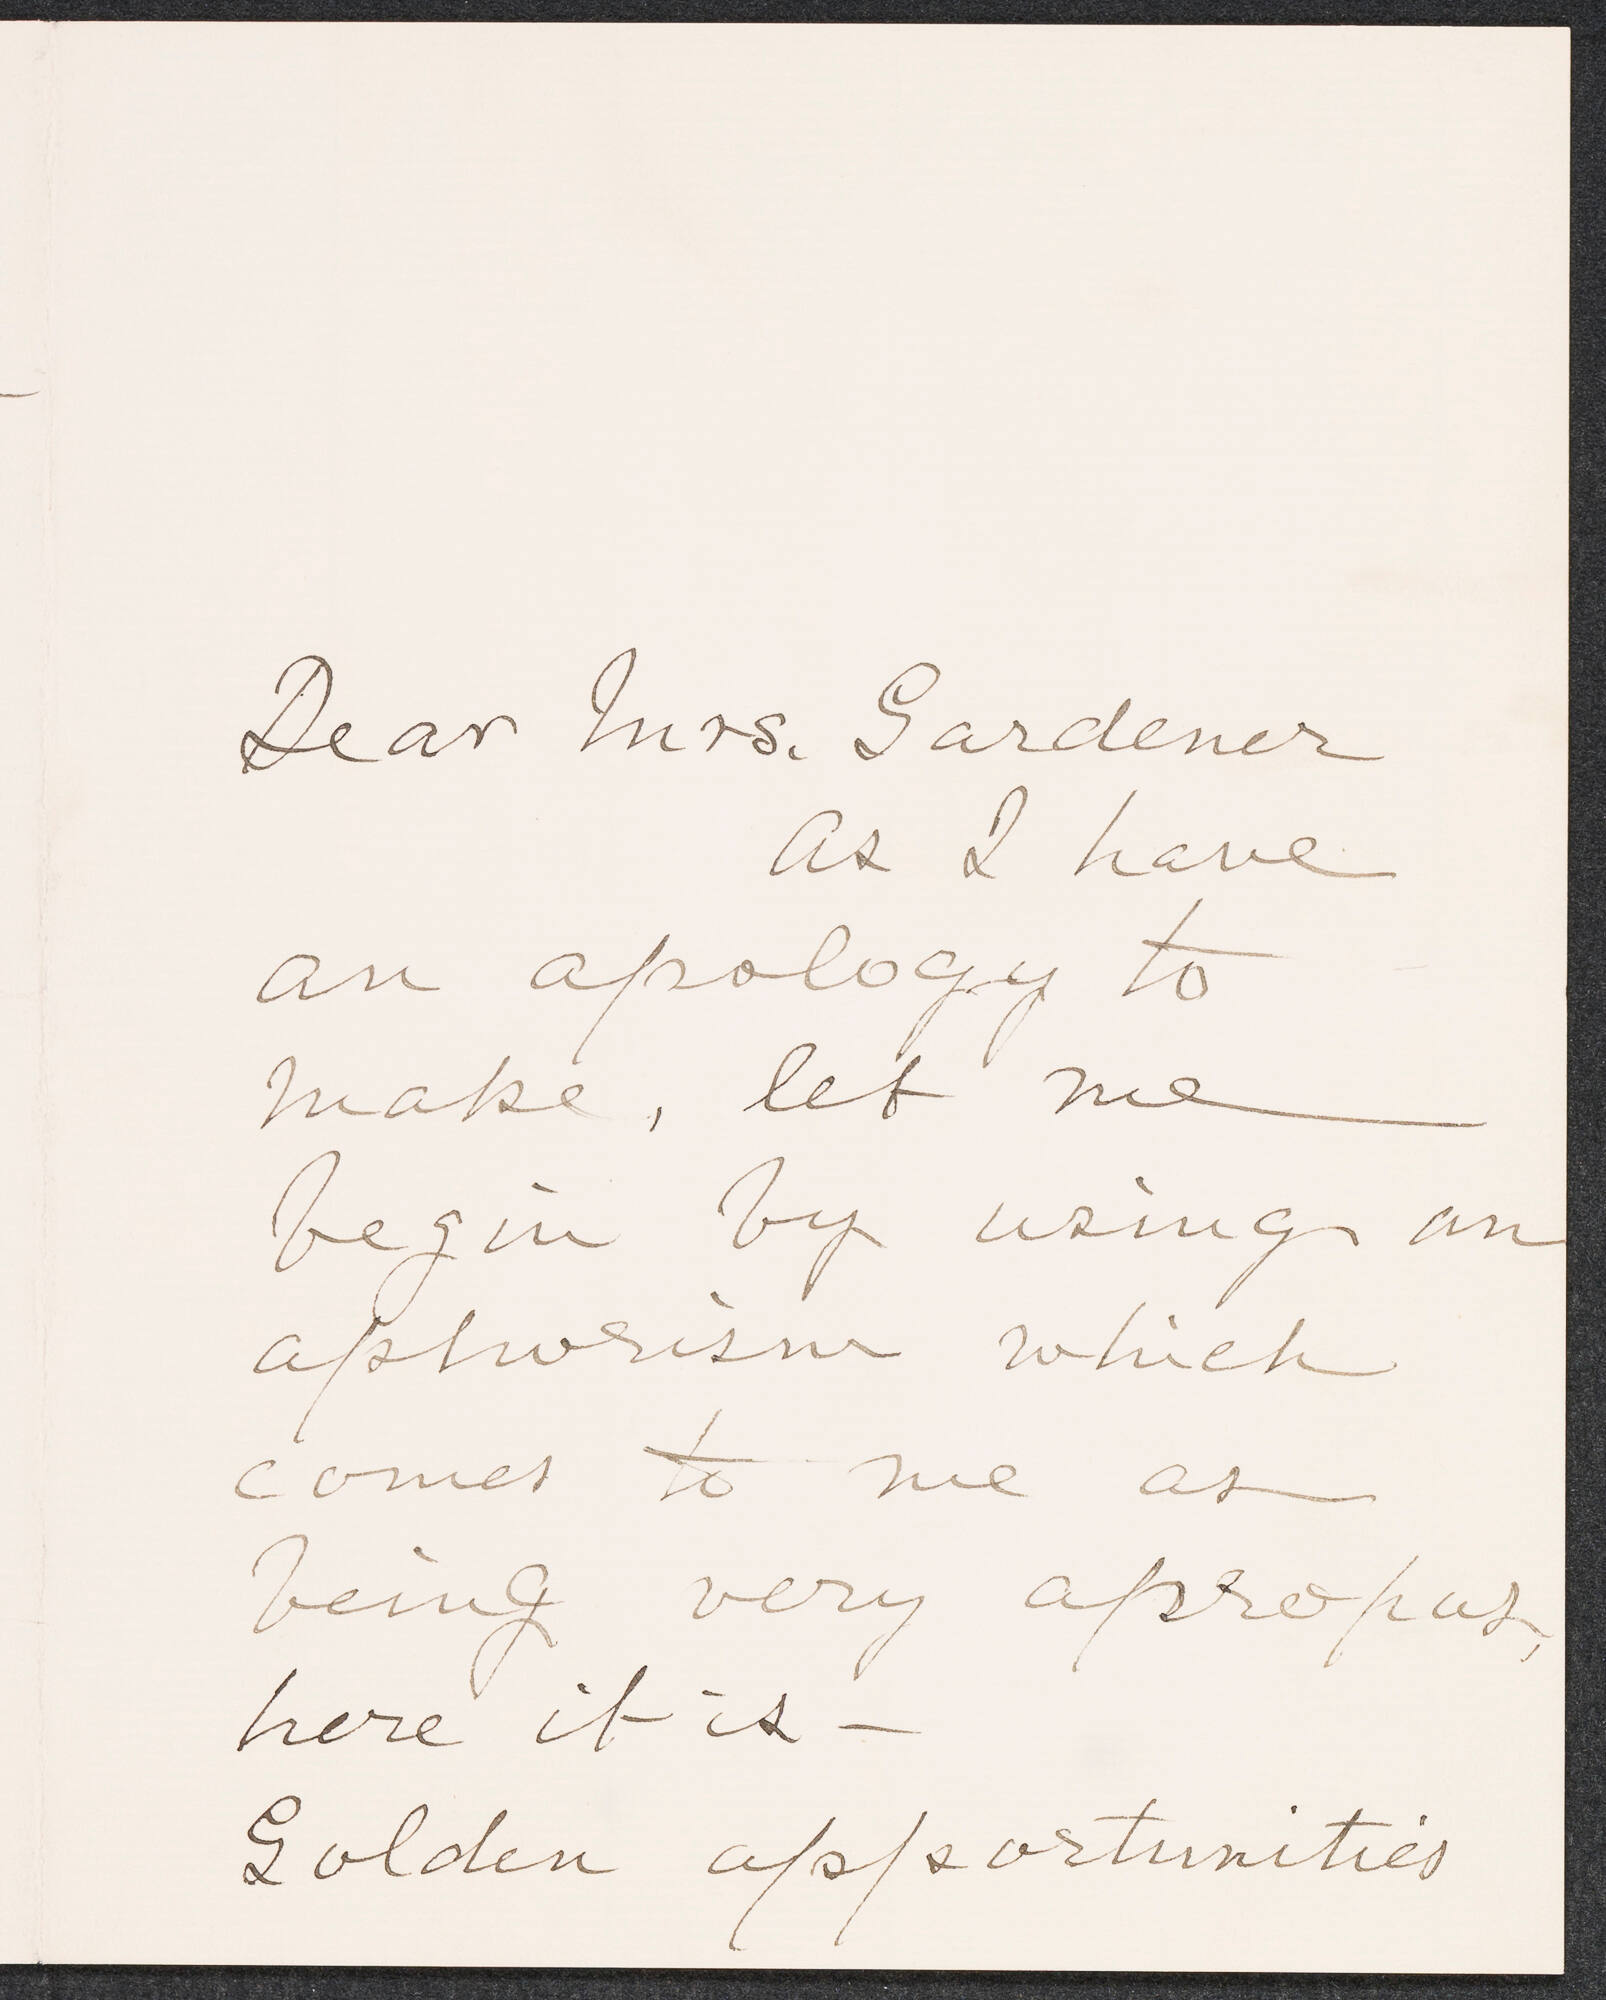 Dear Mrs. Gardener
As I have
an apology to
make, let me
begin by using an
aphorism which
comes to me as
being very apropos,
here it is —
Golden opportunities